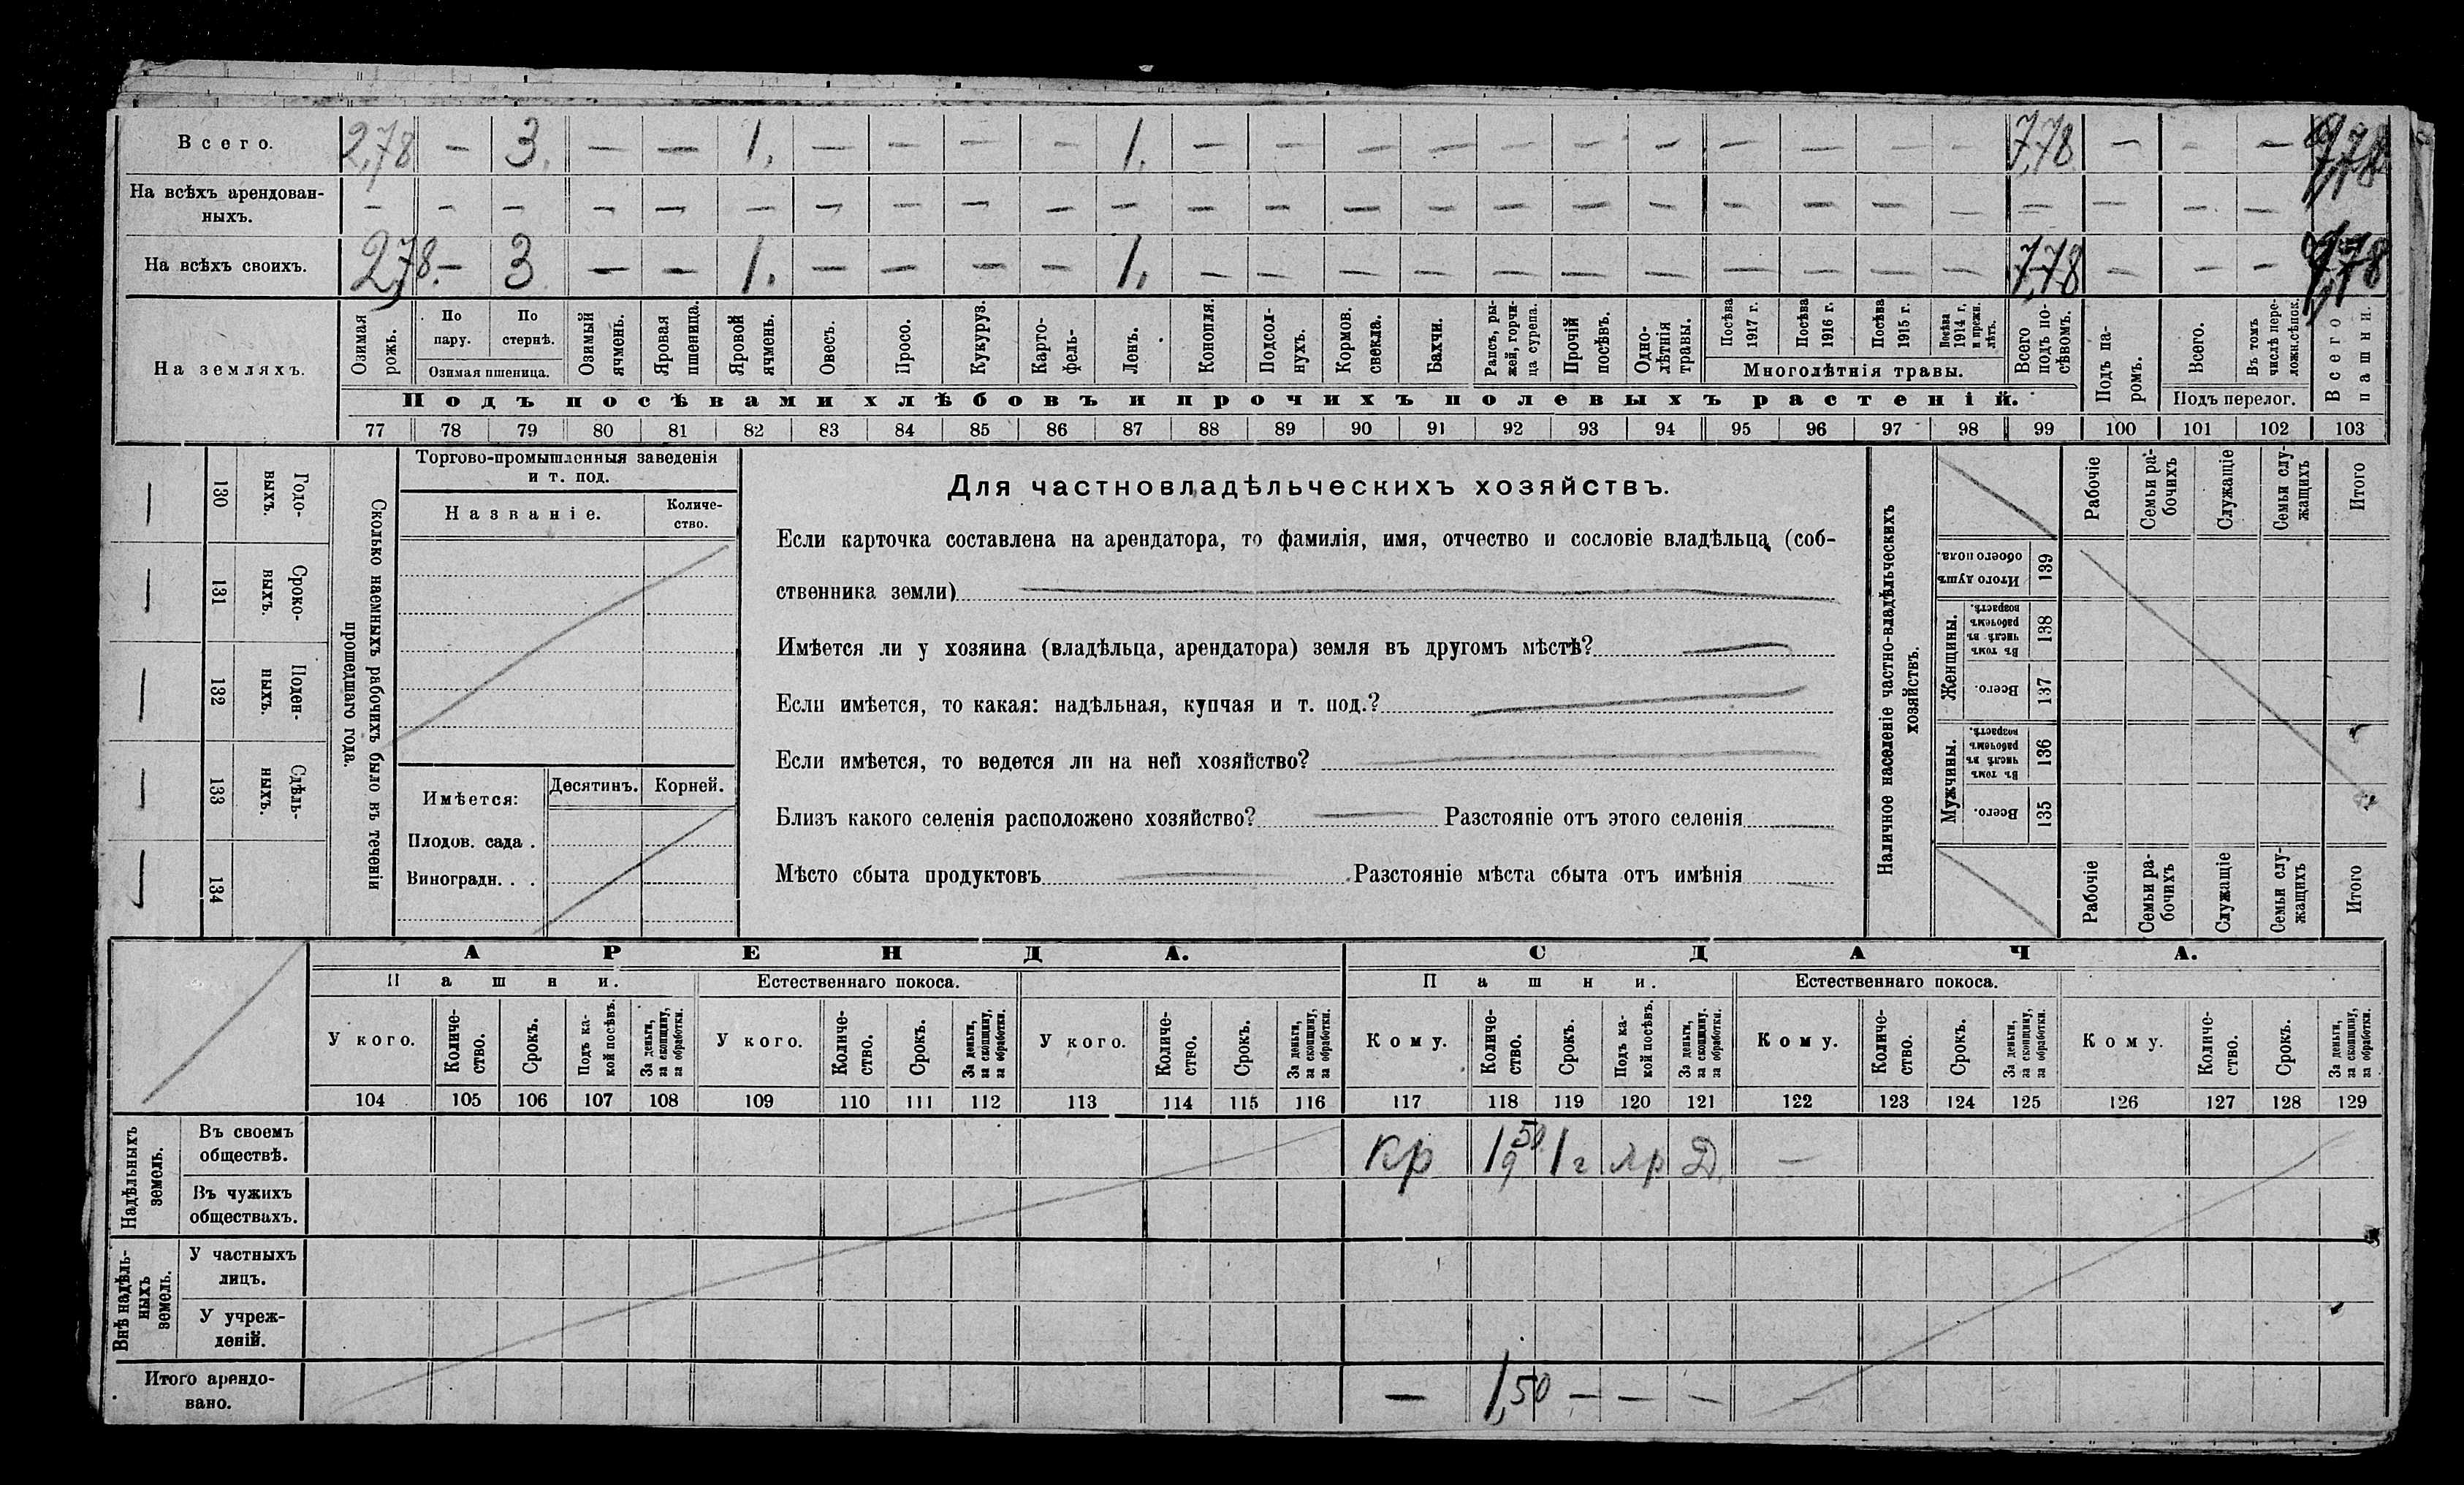 Всего. 2,78 — 3. — — 1. — — — — 1. — — — — — — — — — — — 7,78 — — — 7,78
На всѣхъ арендован-
ныхъ. — — — — — — — — — — — — — — — — — — — — — — — — — —
На всѣхъ своихъ. 2,78 — 3 — — 1. — — — — 1. — — — — — — — — — — — 7,78 — — — 7,78
На земляхъ.
Озимая рожь.
По пару.
По стернѣ.
Озимая пшеница.
Озимый ячмень.
Яровая пшеница.
Яровой ячмень.
Овесъ.
Просо.
Кукуруз.
Карто-
фель-
Ленъ.
Конопля.
Подсол-
нухъ.
Кормов.
свекла.
Бахчи.
Рапсъ, ры-
жей, горчи-
ца сурепа.
Прочій
посѣвъ.
Одно-
лѣтнія
травы.
Посѣва
1917 г.
Посѣва
1916 г.
Посѣва
1915 г.
Посѣва
1914 г.
и прежн.
лѣтъ.
Многолѣтнія травы.
Всего
подъ по-
сѣвомъ.
Подъ па-
ромъ.
Всего.
Въ томъ
числѣ пере-
ложн.сѣнок.
Подъ перелог.
Всего
пашни.
Подъ посѣвами хлѣбовъ и прочихъ полевыхъ растеній.
77 78 79 80 81 82 83 84 85 86 87 88 89 90 91 92 93 94 95 96 97 98 99 100 101 102 103
Сколько наемныхъ рабочихъ было въ теченіи
прошедшаго года.
Годо-
выхъ.
130 —
Сроко-
выхъ.
131 —
Поден-
ныхъ.
132 —
Сдѣль-
ныхъ.
133 —
134 —
Торгово-промышленныя заведенія
и т. под.
Названіе.
Количе-
ство.
Имѣется:
Десятинъ.
Корней.
Плодов. сада .
Виноградн. . .
Для частновладѣльческихъ хозяйствъ.
Если карточка составлена на арендатора, то фамилія, имя, отчество и сословіе владѣльца (соб-
ственника земли) —
Имѣется ли у хозяина (владѣльца, арендатора) земля въ другомъ мѣстѣ? —
Если имѣется, то какая: надѣльная, купчая и т. под.? —
Если имѣется, то ведется ли на ней хозяйство? —
Близъ какого селенія расположено хозяйство? — Разстояніе отъ этого селенія —
Мѣсто сбыта продуктовъ — Разстояніе мѣста сбыта отъ имѣнія —
Наличное населеніе частно-владѣльческихъ
хозяйствъ.
Рабочіе
Семьи ра-
бочихъ
Служащіе
Семьи слу-
жащихъ
Итого
Итого душъ
обоего пола.
139
Женщины.
Въ томъ
числѣ въ
рабочемъ
возрастѣ.
138
Всего.
137
Мужчины.
Въ томъ
числѣ въ
рабочемъ
возрастѣ.
136
Всего.
135
Рабочіе
Семьи ра-
бочихъ
Служащіе
Семьи слу-
жащихъ
Итого
АРЕНДА. СДАЧА.
Пашни. Естественнаго покоса. Пашни. Естественнаго покоса.
У кого.
Количе-
ство.
Срокъ.
Подъ ка-
кой посѣвъ.
За деньги,
за скопщину,
за обработки.
У кого.
Количе-
ство.
Срокъ.
За деньги,
за скопщину,
за обработки.
У кого.
Количе-
ство.
Срокъ.
За деньги,
за скопщину,
за обработки.
Кому.
Количе-
ство.
Срокъ.
Подъ ка-
кой посѣвъ.
За деньги,
за скопщину,
за обработки.
Кому.
Количе-
ство.
Срокъ.
За деньги,
за скопщину,
за обработки.
Кому.
Количе-
ство.
Срокъ.
За деньги,
за скопщину,
за обработки.
104 105 106 107 108 109 110 111 112 113 114 115 116 117 118 119 120 121 122 123 124 125 126 127 128 129
Надѣльныхъ
земель.
Въ своемъ
обществѣ. Кр 1 50 1 г Яр Д. —
Въ чужихъ
обществахъ.
Внѣ надѣль-
ныхъ
земель.
У частныхъ
лицъ.
У учреж-
деній.
Итого арендо-
вано. — 1,50 — — — —